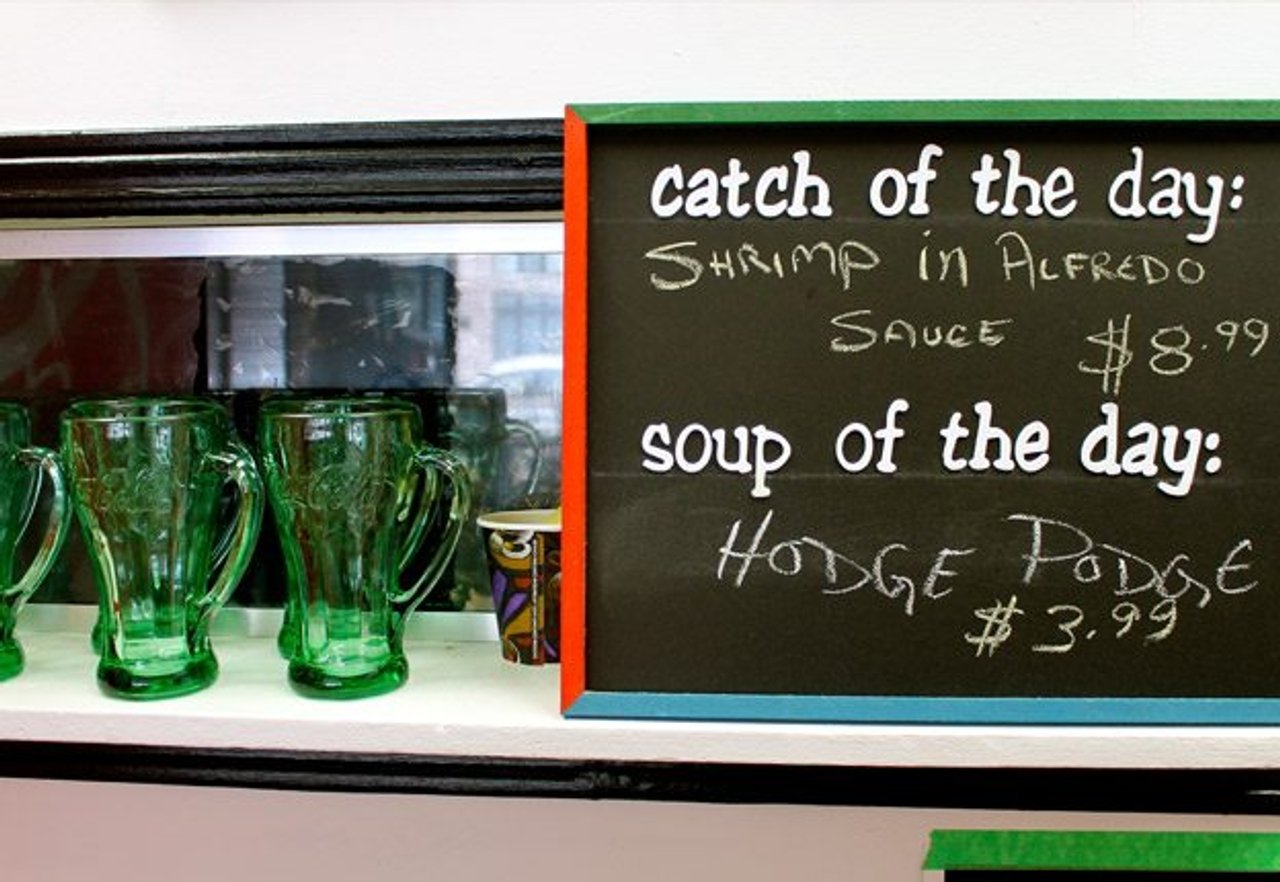 catch of the day:
SHRIMP in ALFREDO
SAUCE $8.99
soup of the day:
HODGE PODGE
$3.99